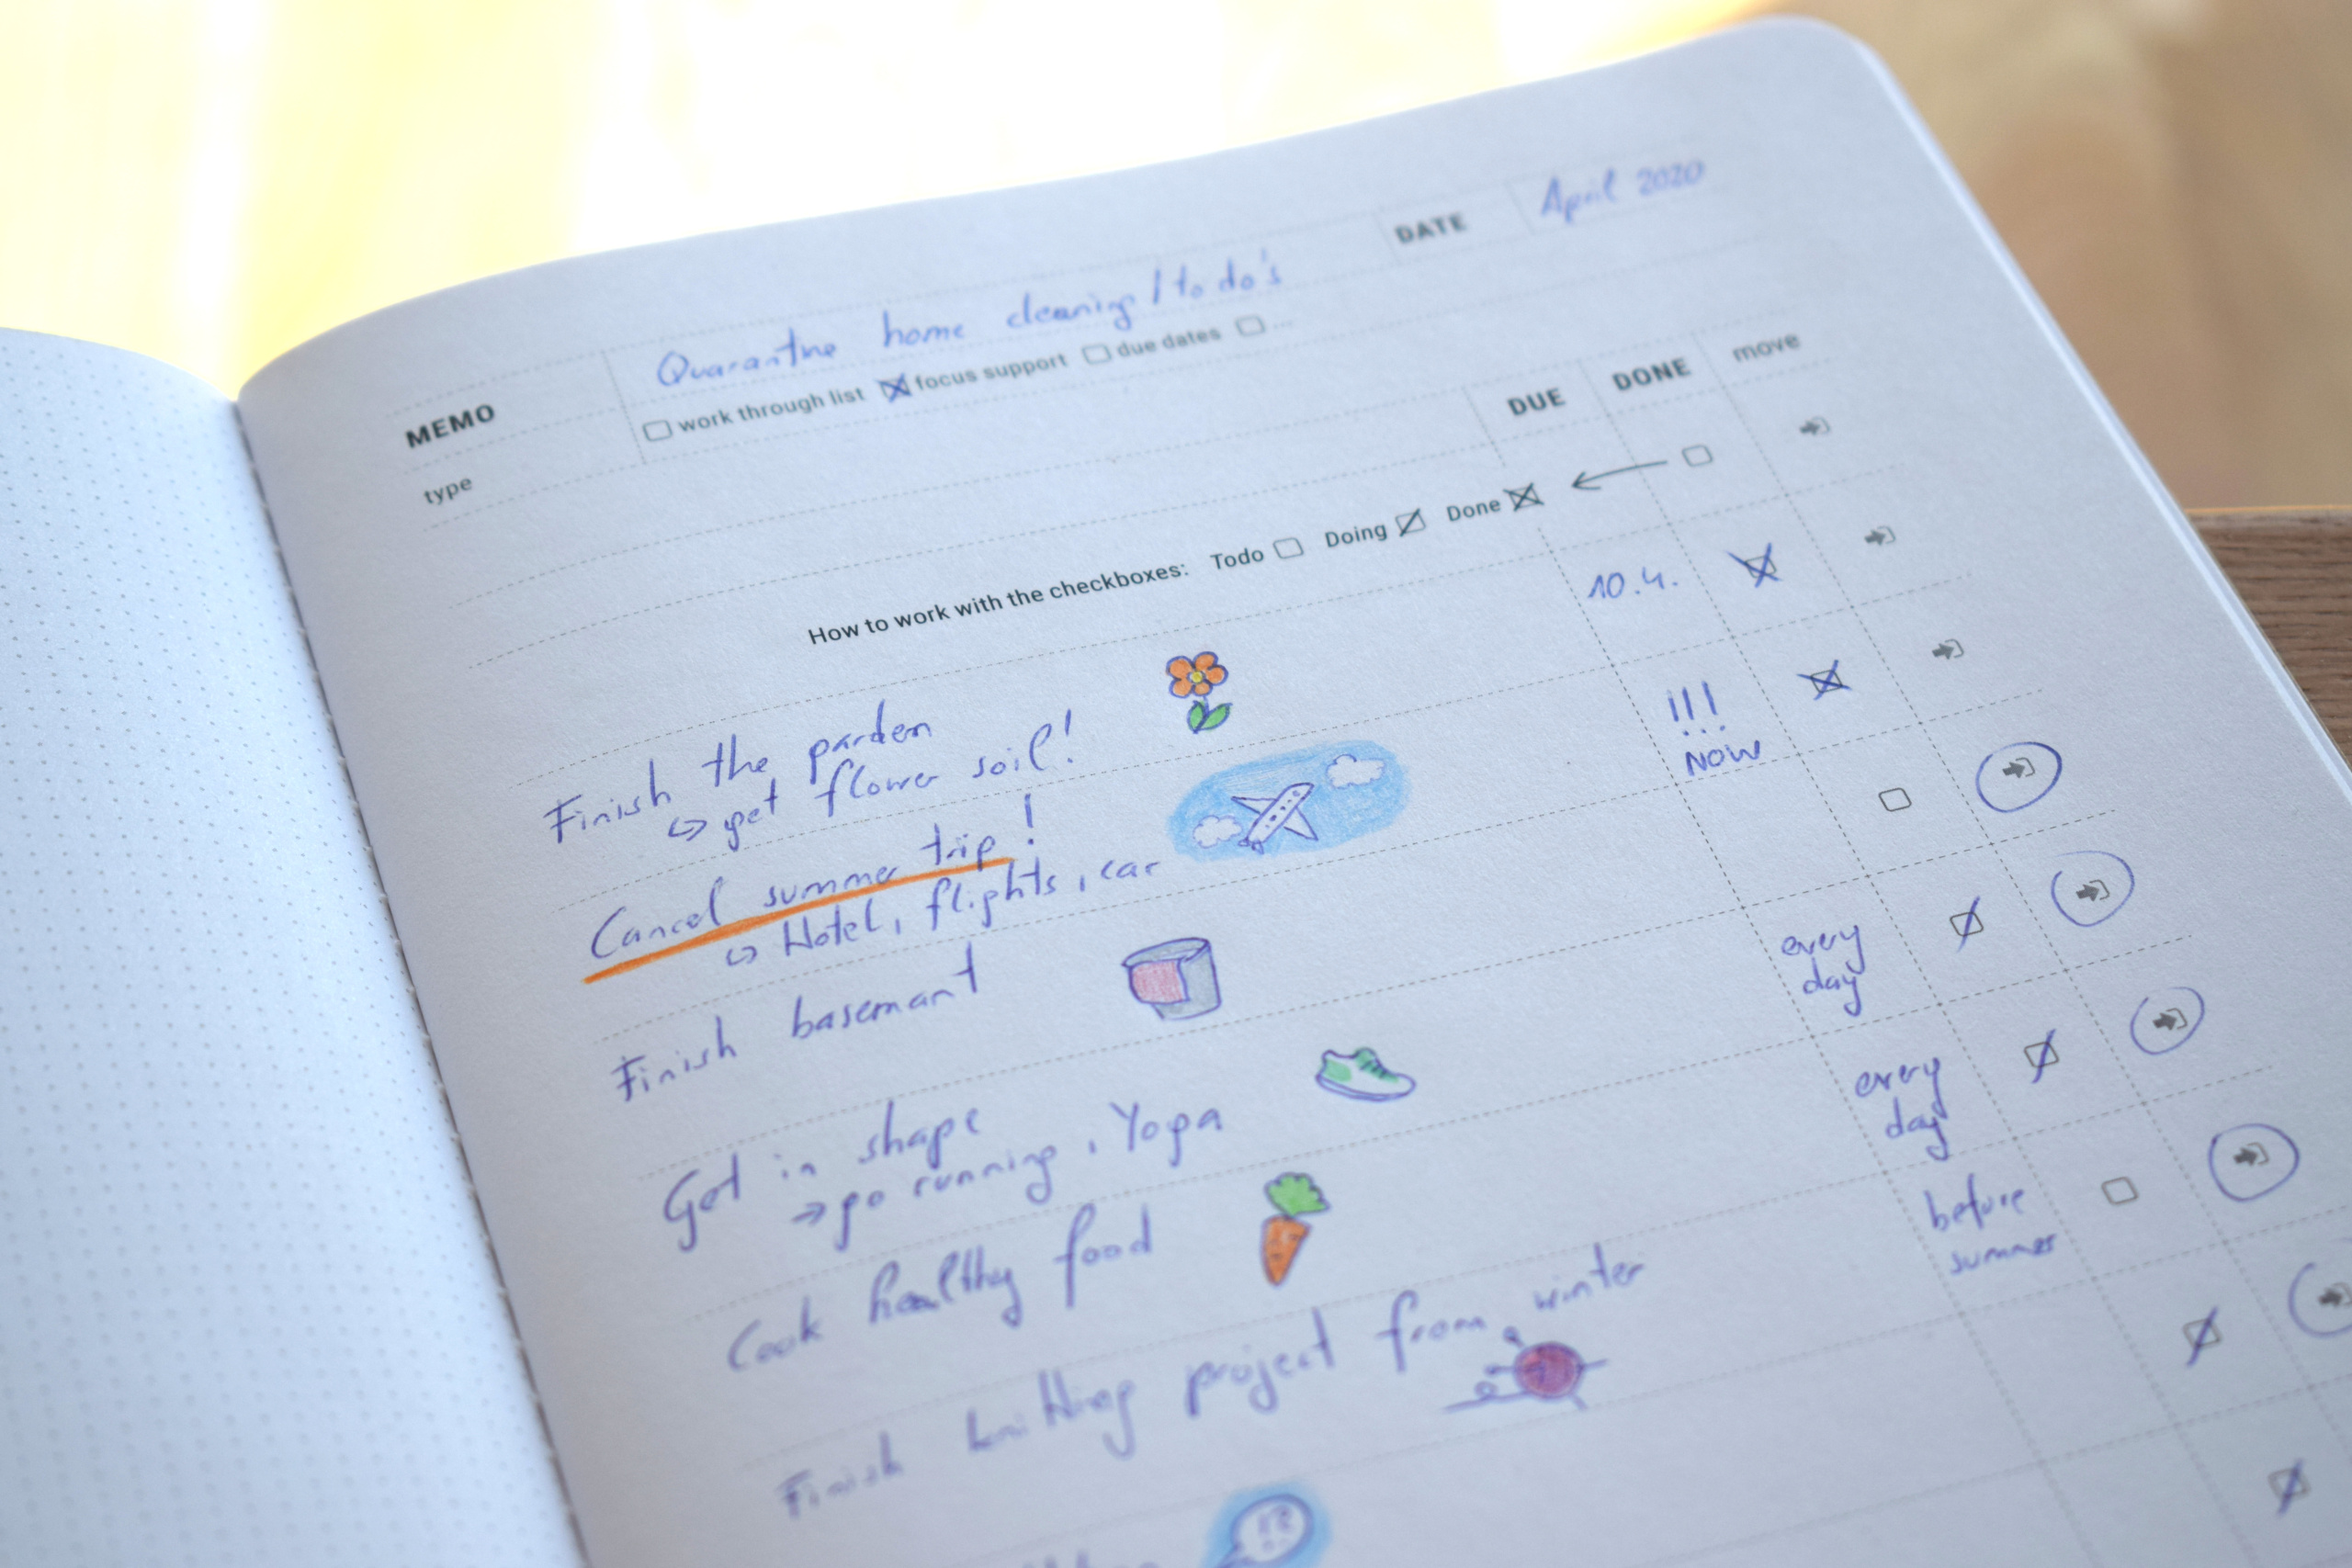 DATE April 2020
MEMO Quarantine home cleaning / to do's
type work through list focus support due dates ...
DUE DONE move
How to work with the checkboxes: Todo Doing Done
Finish the garden 10.4.
↪ get flower soil!
Cancel summer trip! !!!
↪ Hotel, flights, car NOW
Finish basemant
Get in shape every
→ go running, Yoga day
Cook healthy food every
day
Finish knitting project from winter before
summer